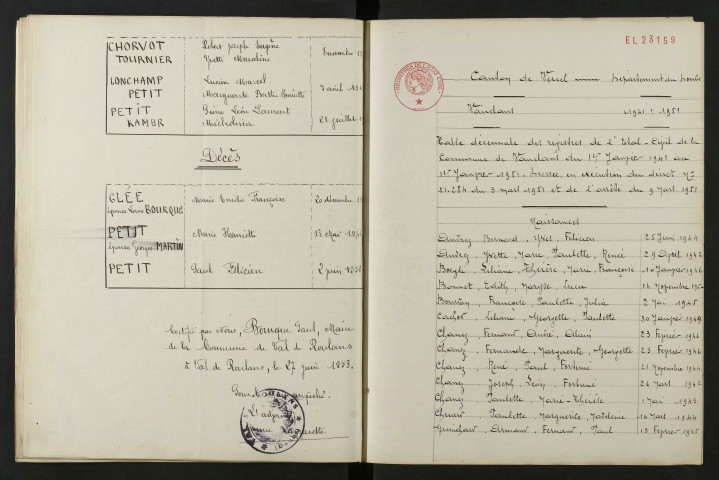 CHORVOT Robert Joseph Eugène
TOURNIER Yvette Marceline
LONGCHAMP Lucien Marcel
PETIT Marguerite Berthe Henriette 3 avril
PETIT Pierre Léon Laurent
KAMBR 21 juillet
Décès
GLÉE Marie Emilie Françoise 20 décembre
épouse Louis BOURQUE
PETIT Marie Henriette 13 Mai
épouse Georges MARTIN
PETIT Paul Félicien 2 juin 1950
Certifié par Nous, Paul, Maire
de la Commune de Val de Roulans
à Val de Roulans, le 27 juin 1953.
Pour le Maire empêché
L'adjoint
EL23159
Canton de Vercel Département du Doubs
Vaudans 1941 - 1951
Table décennale des registres de l'Etat-Civil de la
Commune de Vaudans du 1er Janvier 1941 au
1er Janvier 1951 dressée en exécution du décret No
51.284 du 3 mars 1951 et de l'arrêté du 9 mars 1951
Naissances
Andrey Bernard, Yves, Félicien 25 Juin 1944
Andrey, Yvette, Marie, Paulette, Renée 29 Avril 1942
Liliane, Thérèse, Marie, Françoise 10 Janvier 1946
Bonnet, Edith, Maryse, Lucie 14 Novembre
Françoise, Paulette, Julia 2 Mai 1945
Cachot, Liliane, Georgette, Paulette 30 Janvier 1949
Chanez, Fernand, André, Alain 23 Février 1946
Chanez, Fernande, Marguerite, Georgette 23 Février 1946
Chanez, René, Paul, Fortuné 21 Novembre 1944
Chanez, Joseph, Léon, Fortuné 26 Mars 1942
Chanez, Paulette, Marie-Thérèse 1 Mai 1942
Paulette, Marguerite, Madeleine 16 Mars 1944
Armand, Fernand, Paul 13 Février 1945